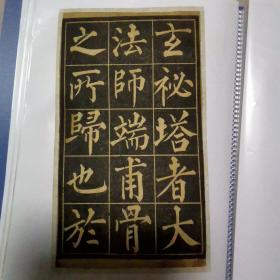 玄祕塔者大
法師端甫骨
之所歸也於